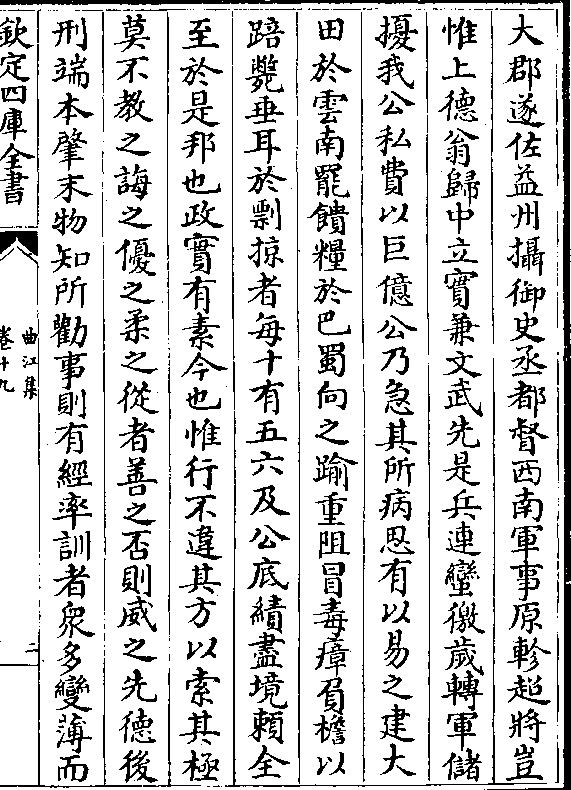 大郡遂佐益州攝御史丞都督西南軍事原軫超將豈
惟上德翁歸中立實兼文武先是兵連蠻徼歲轉軍儲
擾我公私費以巨億公乃急其所病思有以易之建大
田於雲南罷饋糧於巴蜀向之踰重阻冒毒瘴負檐以
踣斃垂耳於剽掠者每十有五六及公底績盡境賴全
至於是邦也政實有素今也惟行不違其方以索其極
莫不教之誨之優之柔之從者善之否則威之先德後
刑端本肇末物知所勸事則有經率訓者衆多變薄而
欽定四庫全書
曲江集
卷十九
二